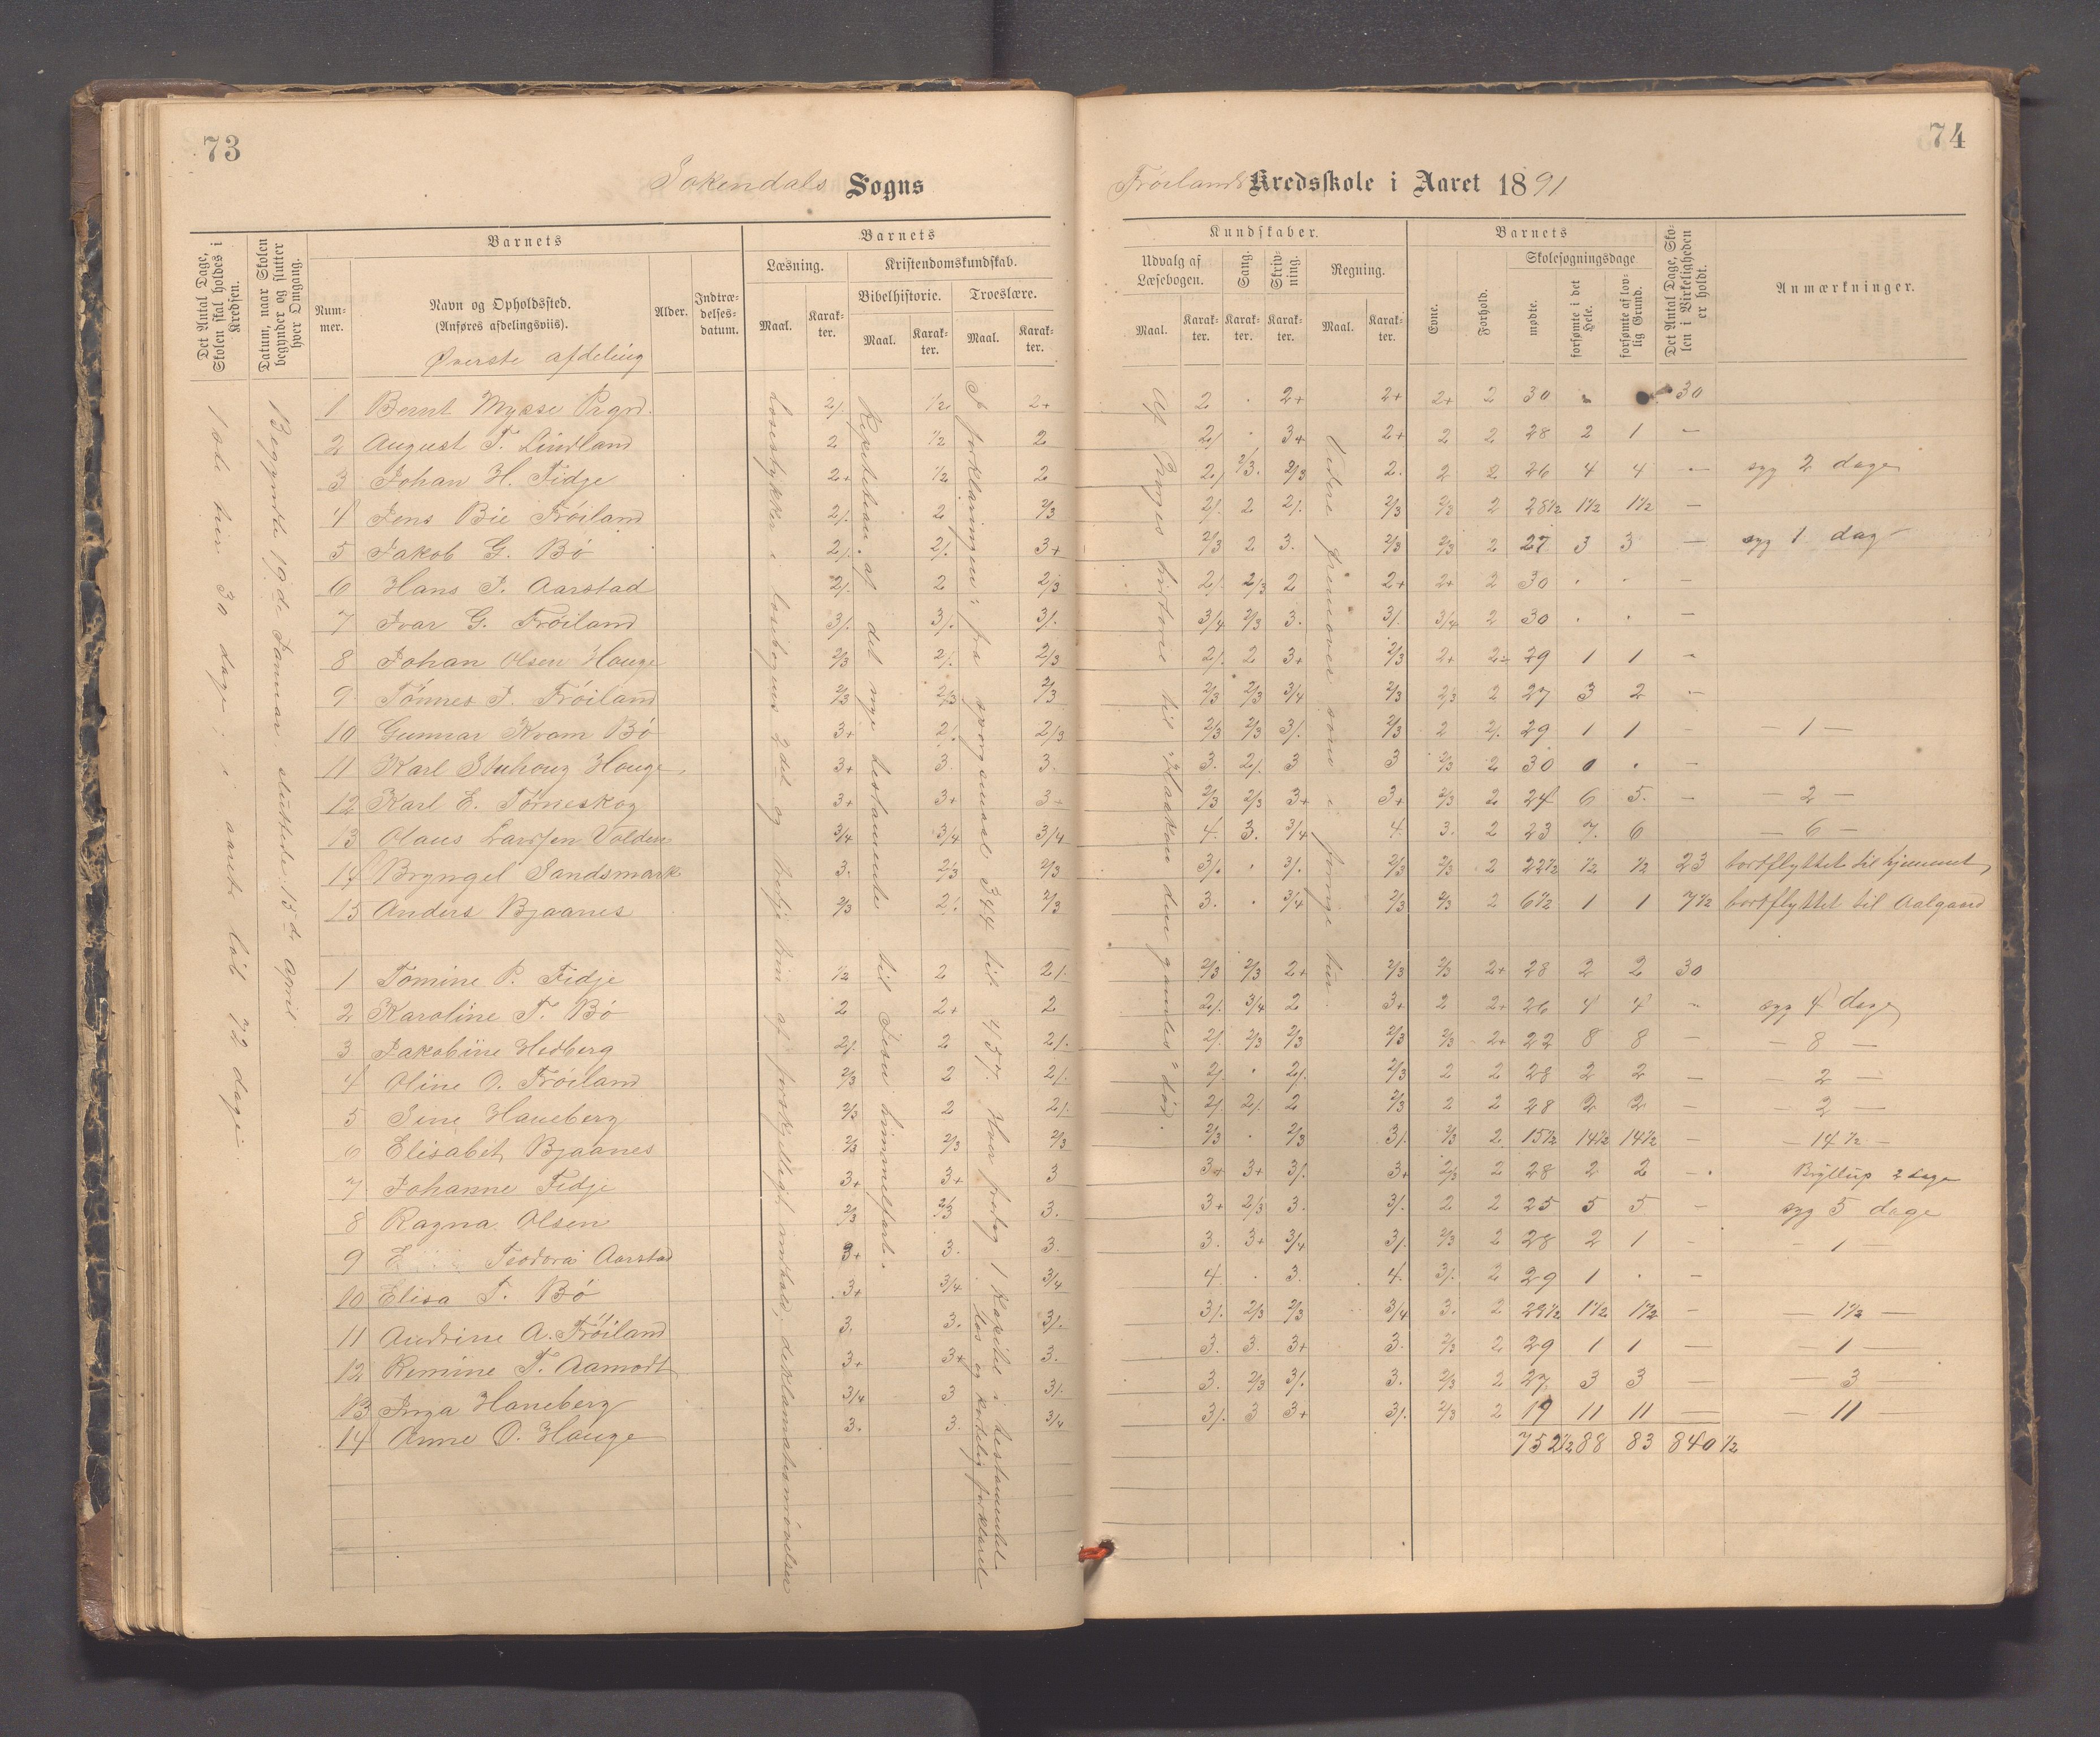 73
Sokendals Sogns
Det Antal Dage, Skolen skal holdes i Kredsen.
Datum, naar Skolen begynder og slutter hver Omgang.
Barnets
Nummer.
Navn og Opholdssted.
(Anføres afdelingsviis).
Øverste afdeling
Alder.
Indtrædelsesdatum.
Barnets
Læsning.
Kristendomskundskab.
Bibelhistorie.
Troeslære.
Maal.
Karakter.
Maal.
Karakter.
Maal.
Karakter.
30 dage; i aaret løb 72 dage.
Begyndte 19de Januar, sluttede 15de April
Læsestykker i læsebogens 2det og
Repetition af det nye testamente til Jesu himmelfart.
forklaringen: fra spørgsmaal 344 til 457.
1 Bernt Mysse Prgrd. 2/. 1/2 2+
2 August T. Lindland 2 1/2 2
3 Johan H. Fidje 2+ 1/2 2
4 Jens Bie Frøiland 2/. 2 2/3
5 Jakob G. Bø 2/. 2/. 3+
6 Hans J. Aarstad 2/. 2 2/3
7 Ivar G. Frøiland 3/. 3/. 3/.
8 Johan Olsen Hauge 2/3 2/. 2/3
9 Tønnes J. Frøiland 2/3 2/3 2/3
10 Gunnar Kvam Bø 3+ 2/. 2/3
11 Karl Stuhoug Hauge 3+ 3. 3.
12 Karl E. Tørneskog 3+ 3+ 3+
13 Olaus Larssen Volden 3/4 3/4 3/4
14 Bryngel Sandsmark 3. 2/3 2/3
15 Anders Bjaanes 2/3 2/. 2/3
1 Tomine P. Fidje 1/2 2 2/.
2 Karoline T. Bø 2 2+ 2
3 Jakobine Hedberg 2/. 2 2/.
4 Oline O. Frøiland 2/3 2 2/.
5 Sine Haneberg 2/3 2 2/.
6 Elisabet Bjaanes 2/3 2/3 2/3
7 Johanne Fidje 3+ 3+ 3
8 Ragna Olsen 2/3 2/3 3.
9 Teodora Aarstad 3+ 3. 3.
10 Elisa T. Bø 3+ 3/4 3/4
11 Andrine A. Frøiland 3. 3. 3/.
12 Remine T. Aamodt 3+ 3+ 3.
13 Inga Haneberg 3/4 3 3/.
14 Anne O. Hauge 3. 3. 3/4
74
Frøilands Kredsskole i Aaret 1891
Kundskaber.
Udvalg af Læsebogen.
Sang.
Skrivning.
Regning.
Maal.
Karakter.
Karakter.
Karakter.
Maal.
Karakter.
Barnets
Evne.
Forhold.
Skolesøgningsdage
mødte.
forsømte i det Hele.
forsømte af lovlig Grund.
Det Antal Dage, Skolen i Virkeligheden er holdt.
Anmærkninger.
Af Norges historie til "Haakon den gamles" død.
Videre fremover som i forrige
2 . 2+ 2+ 2+ 2 30 30
2/. . 3+ 2+ 2 2 28 2 1 —
2/. 2/3. 2/3 2. 2 2 26 4 4 — syg 2 dage
2/. 2 2/. 2/3 2/3 2 28 1/2 1 1/2 1 1/2 —
2/3 2 3. 2/3 2/3 2 27 3 3 — syg 1 dag
2/. 2/3 2 2+ 2+ 2 30 . . —
3/4 2/3 3. 3/. 3/4 2 30 . . —
2/. 2 3+ 2/3 2+ 2÷ 29 1 1 —
2/3 2/3 3/4 2/3 2/3 2 27 3 2 —
2/3 2/3 3/. 2/3 2 2/. 29 1 1 — — 1 —
3. 2/. 3 3 2/3 2 30 0 . —
2/3 2/3 3+ 3+ 2/3 2 24 6 5. — — 2 —
4. 3. 3/4 4. 3. 2 23 7. 6 — 6 —
3/. . 3/. 2/3 2/3 2 22 1/2 1/2 1/2 23 bortflyttet til hjemmet
3. . 3/4 2/3 2/3 2 6 1/2 1 1 7 1/2 bortflyttet til Aalgaard
2/3 2/3 2+ 2/3 2/3 2+ 28 2 2 30
2/. 3/4 2 3+ 2 2+ 26 4 4 — syg 4 dage
2/. 2/3 2/3 2/3 2/3 2+ 22 8 8 — — 8 —
2/. . 2/. 2/3 2 2 28 2 2 — — 2 —
2/. 2/. 2 2/3 2 2 28 2 2 — — 2 —
2/3 . 2/3 3/. 2/3 2. 15 1/2 14 1/2 14 1/2 — — 14 1/2 —
3+ 3+ 3/. 3+ 2/3 2 28 2 2 — Bryllup 2 dage
3+ 2/3 3. 3/. 2 2 25 5 5 — syg 5 dage
3. 3+ 3/4 3/. 2/3 2 28 2 1 — — 1 —
4. . 3. 4. 3/. 2 29 1 . —
3/. 2/3 2/3 3/4 3. 2 28 1/2 1 1/2 1 1/2 — — 1 1/2 —
3. 3. 3+ 3. 2/3 2 29 1 1 — — 1 —
3. 2/3 3/. 3. 2/3 2 27 3 3 — — 3
3/. 3 3+ 3/. 2/3 2 19 11 11 — — 11
752 1/2 88 83 840 1/2